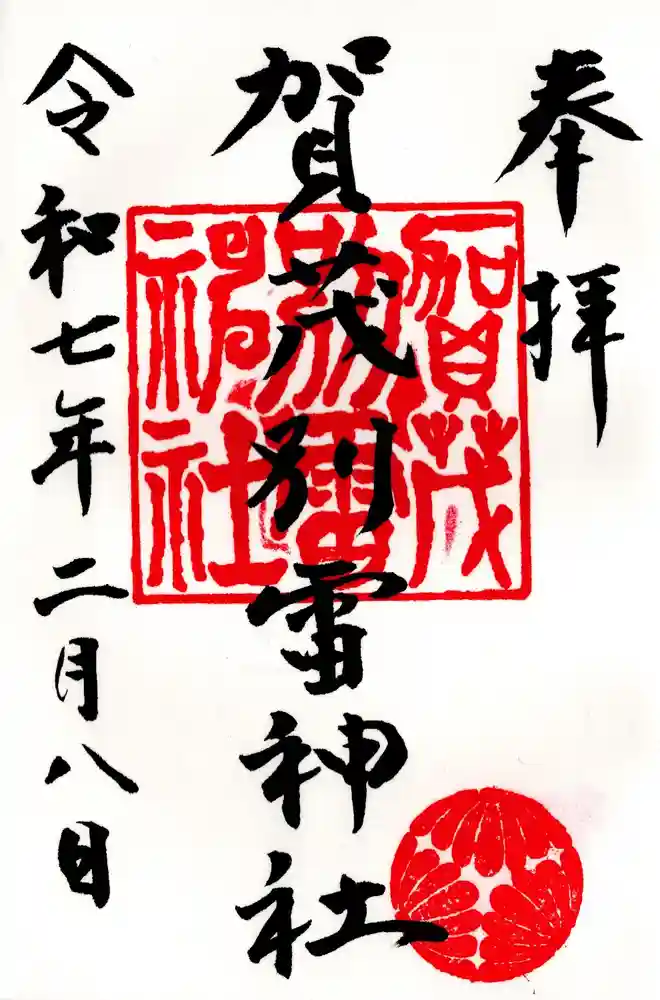 奉拝
賀茂別雷神社
賀茂別雷神社
令和七年二月八日